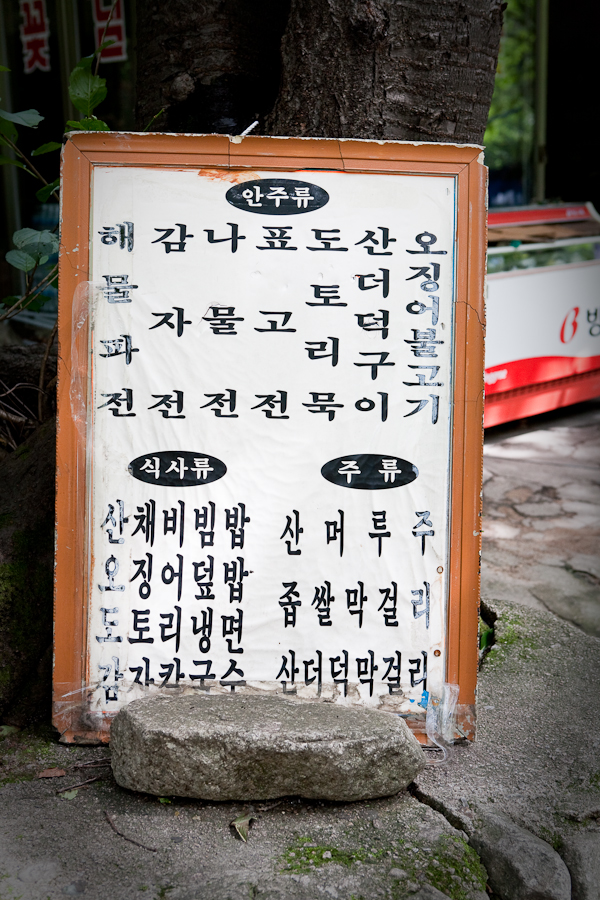 안주류
해물파전
감자전
나물전
표고전
도토리묵
산더덕구이
오징어불고기
식사류
산채비빔밥
오징어덮밥
도토리냉면
감자칼국수
주류
산머루주
좁쌀막걸리
산더덕막걸리